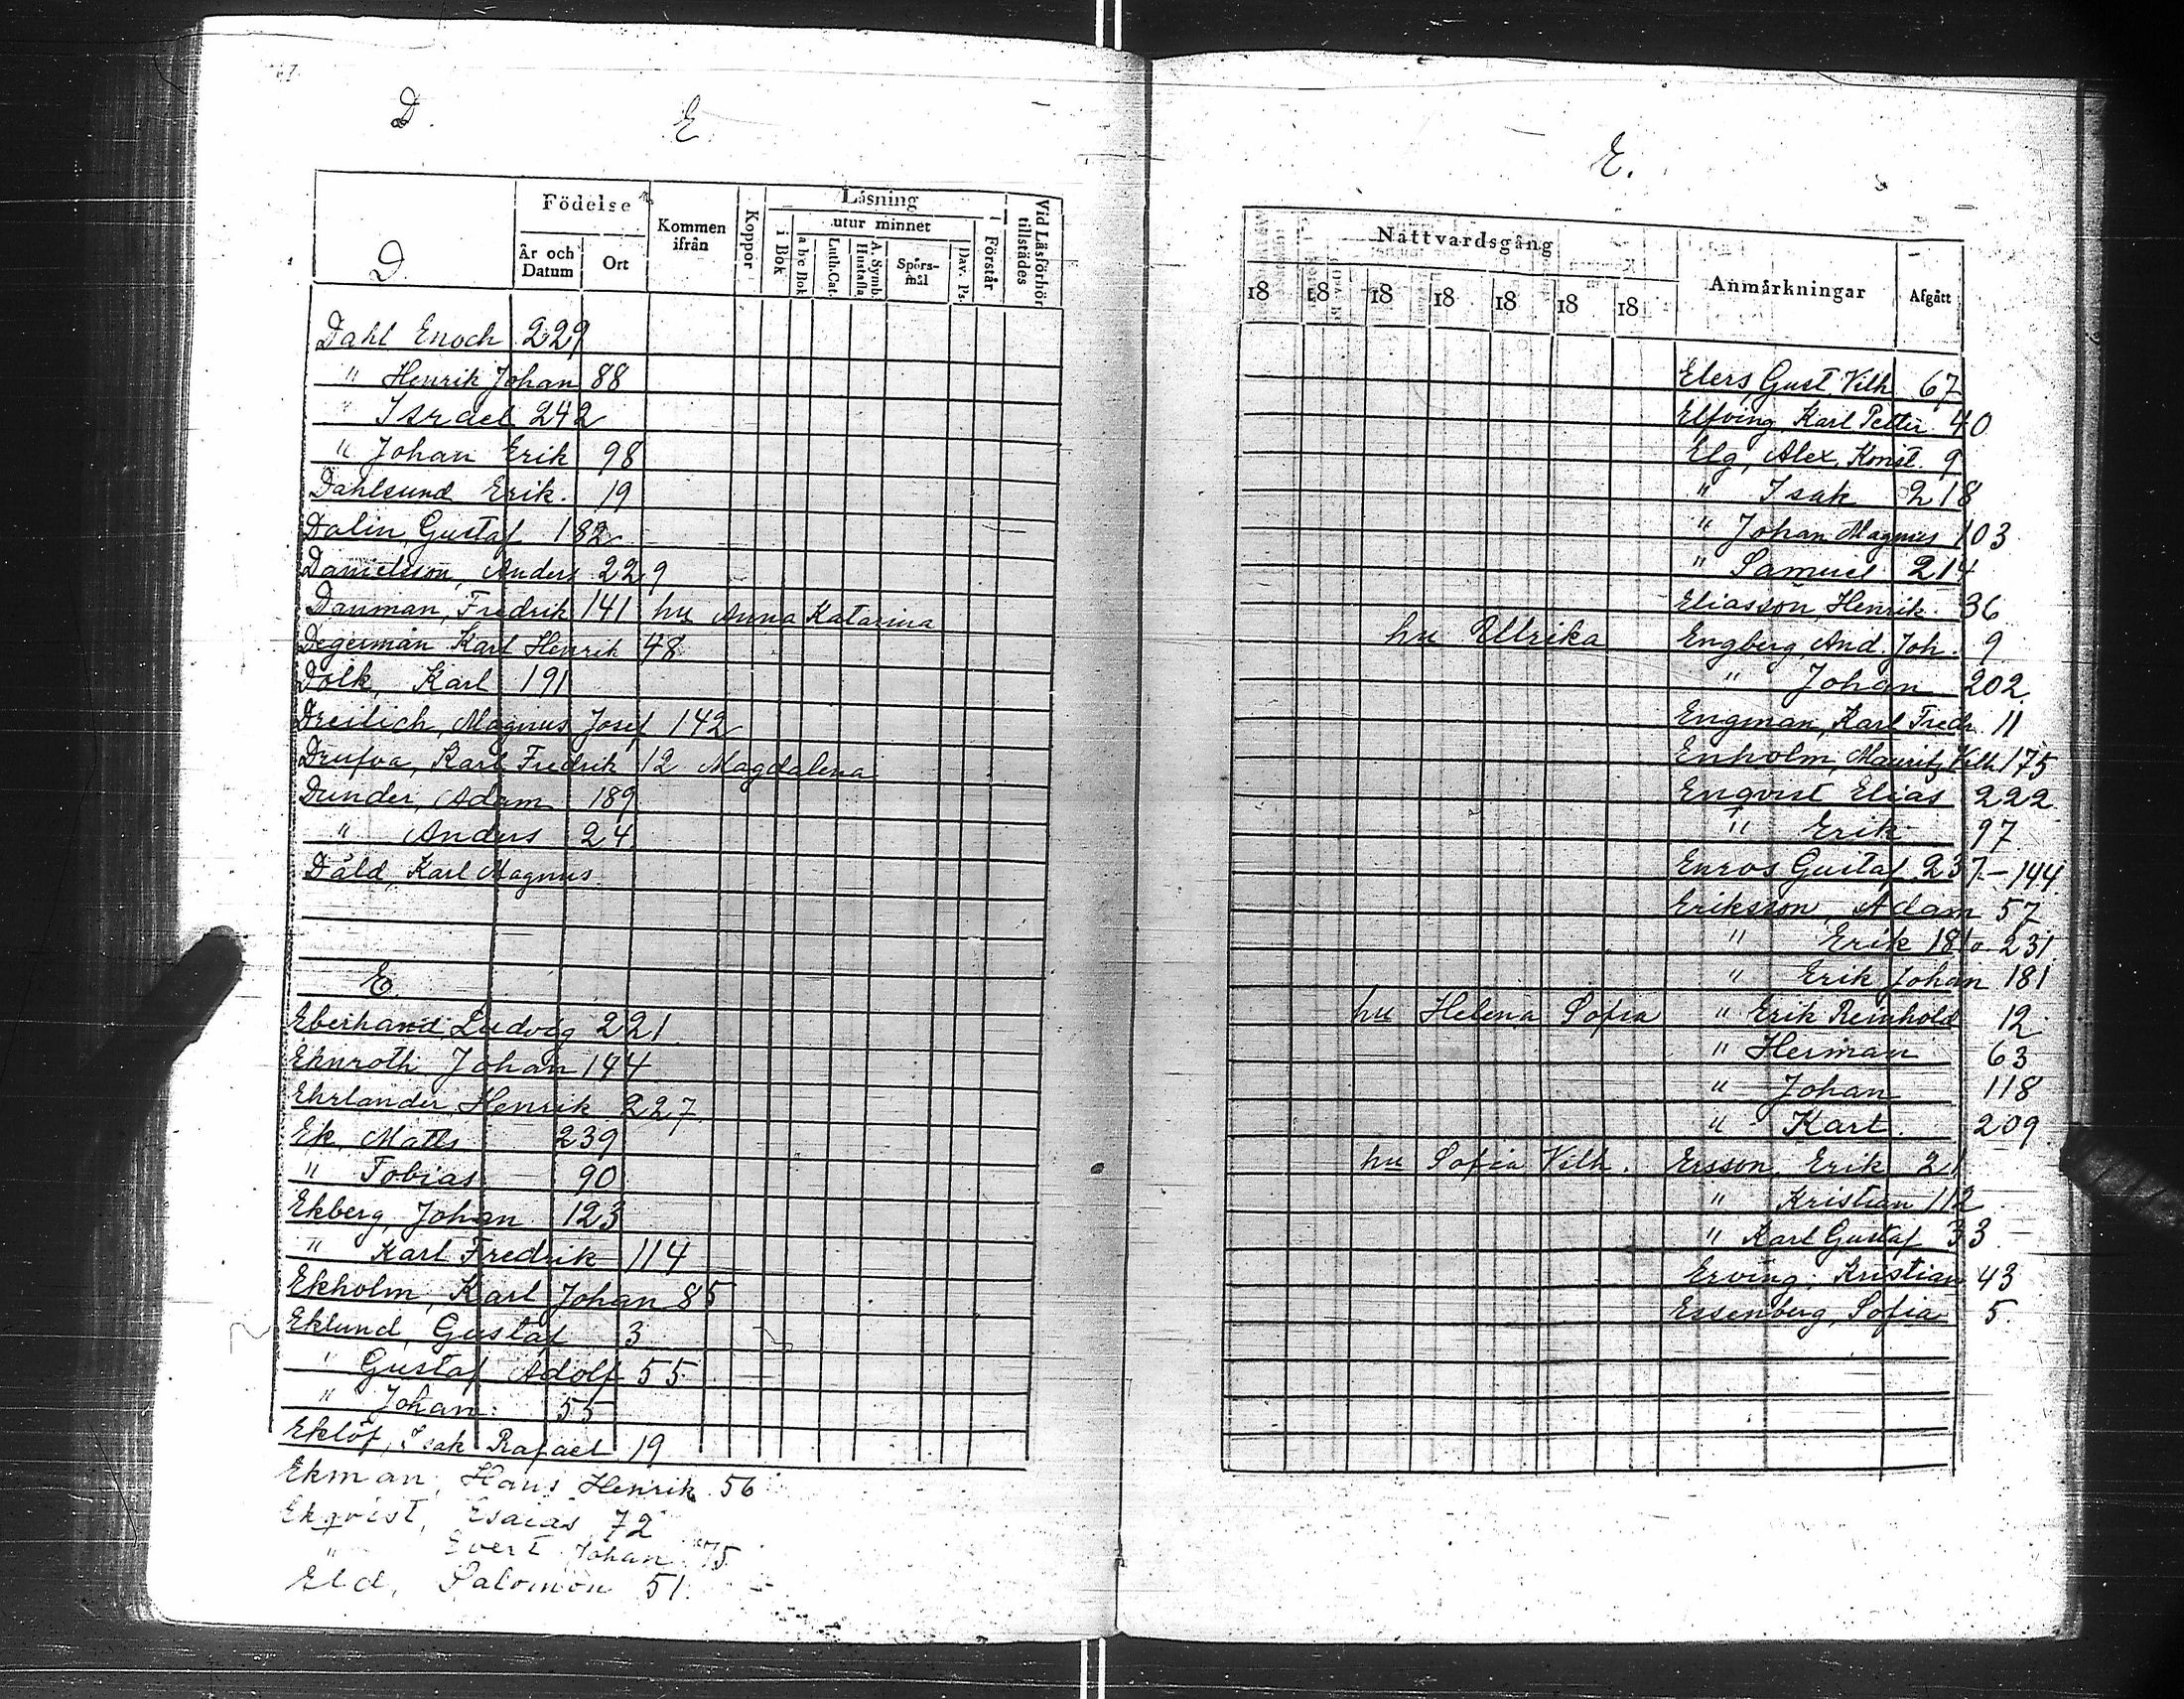 D. E.
Födelse
Läsning
utur minnet
Kommen ifrån
Koppor
i Bok
a b c Bok
Luth. Cat.
A. Symb. Hustafla
Spörs-mål
Dav. Ps.
Förstår
Vid Läsförhör tillstädes
År och Datum
Ort
D.
Dahl Enoch 229
" Henrik Johan 88
" Israel 242
" Johan Erik 98
Dahlsund Erik. 19
Dalin, Gustaf 182
Danielsson, Anders 229
Danman, Fredrik 141 hu Anna Katarina
Degerman Karl Henrik 48
Dolk, Karl 191
Dreilich, Magnus Josef 142
Drufva, Karl Fredrik 12 Magdalena
Dunder, Adam 189
" Anders 24
Dåld, Karl Magnus.
E.
Eberhand, Ludvig 221
Ehnroth Johan 144
Ehrlander, Henrik 227
Ek, Matts 239
" Tobias 90
Ekberg, Johan 123
" Karl Fredrik 114
Ekholm, Karl Johan 85
Eklund, Gustaf 3
" Gustaf Adolf 55
" Johan 55
Eklöf, Isak Rafael 19
Ekman, Hans Henrik 56
Ekqvist, Esaias 72
" Evert Johan 75
Eld, Salomon 51.
E.
Nattvardsgång
Anmärkningar
Afgått
18 18 18 18 18 18 18
Elers, Gust. Vilh 67
Elfving, Karl Petter 40
Elg, Alex. Konst. 9
" Isak 218
" Johan Magnus 103
" Samuel 214
Eliasson, Henrik 36
hu Ullrika Engberg, And. Joh. 9
" Johan 202
Engman, Karl Fredr. 11
Enholm, Mauritz Vilh 175
Enqvist Elias 222
" Erik 97
Enros Gustaf 237.-144
Eriksson, Adam 57
" Erik 181 o. 231
" Erik Johan 181
hu Helena Sofia " Erik Reinhold 12
" Herman 63
" Johan 118
" Karl. 209
hu Sofia Vilh. Ersson, Erik 21
" Kristian 112
" Karl Gustaf 33
Erving, Kristian 43
Essenberg, Sofia 5.